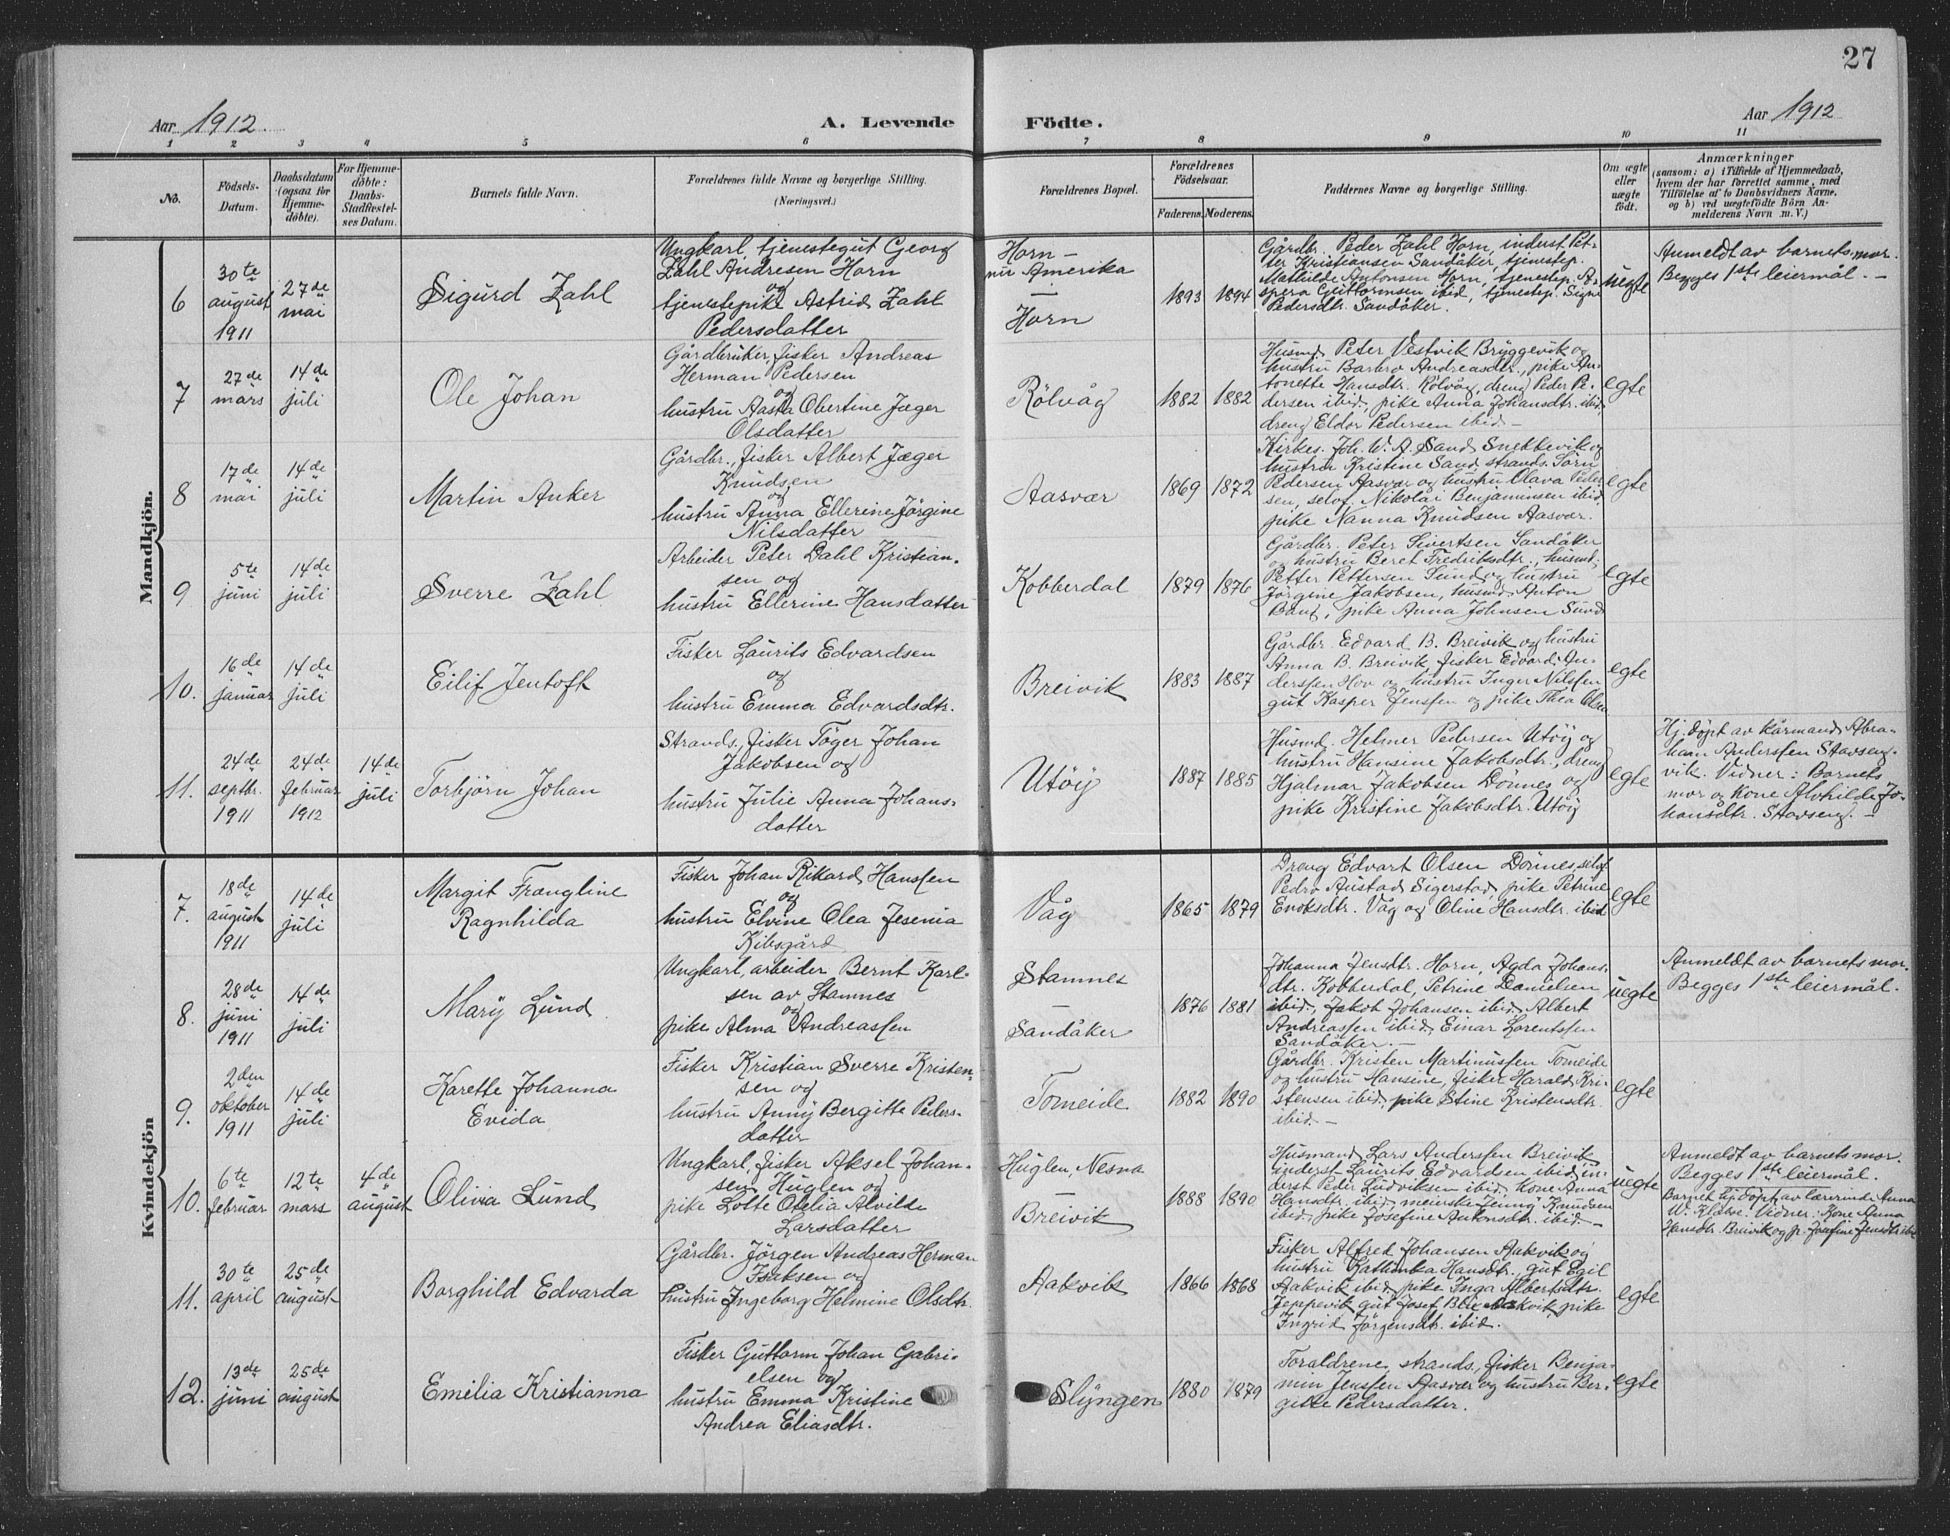 27
Aar 1912
A. Levende
Födte.
Aar 1912
1 2 3 4 5 6 7 8 9 10 11
No.
Födsels-
Datum.
Daabsdatum
(ogsaa for
Hjemme-
döbte).
For Hjemme-
döbte:
Daabs-
Stadfæstel-
ses Datum.
Barnets fulde Navn.
Forældrenes fulde Navne og borgerlige Stilling.
(Næringsvei.)
Forældrenes Bopæl.
Forældrenes
Födselsaar.
Faderens.
Moderens.
Faddernes Navne og borgerlige Stilling.
Om ægte
eller
uægte
født.
Anmærkninger
(saasom: a) i Tilfælde af Hjemmedaab,
hvem der har forrettet samme, med
Tilföielse af to Daabsvidners Navne,
og b) ved uægtefödte Börn An-
melderens Navn m. V.)
Mandkjön.
6
30te
august
1911
27de
mai
Sigurd Zahl
Ungkarl, tjenestegut Georg
Zahl Andresen Horn
og
tjenestepike Astrid Zahl
Pedersdatter
Horn –
nu Amerika
—
Horn
1893 1894
Gårdbr. Peder Zahl Horn, inderst Pet-
ter Kristiansen Sandåker, tjenestep.
Mathilde Antonsen Horn, tjenestep. A-
spera Guttormsen ibid, tjenestep. Signe
Pedersdtr. Sandåker.
uegte
Anmeldt av barnets mor.
Begges 1ste leiermål. –
7
27de
mars
14de
juli
Ole Johan
Gårdbruker, fisker Andreas
Herman Pedersen
og
hustru Aasta Obertine Jæger
Olsdatter
Rölvåg
1882 1882
Husmd. Peter Vestvik Bryggevik og
hustru Barbro Andreasdtr., pike An-
tonette Hansdtr. Rölvåg, dreng Peder Pe-
dersen ibid, pike Anna Johansdtr. ibid,
dreng Eldor Pedersen ibid –
egte
8
17de
mai
14de
juli
Martin Anker
Gårdbr., fisker Albert Jæger
Knudsen
og
hustru Anna Ellerine Jörgine
Nilsdatter
Aasvær
1869 1872
Kirkes. Joh. W. A. Sand Snekkevik og
hustru Kristine Sand, strands. Sörn
Pedersen Aasvær og hustru Olava Peder-
sen, selvf. Nikolai Benjaminsen ibid,
pike Nanna Knudsen Aasvær.
egte
9
5te
juni
14de
juli
Sverre Zahl
Arbeider Peter Dahl Kristian-
sen og
hustru Ellerine Hansdatter
Kobberdal
1879 1876
Gårdbr. Peter Sivertsen Sandåker
og hustru Beret Fredriksdtr., husmd.
Petter Pettersen Sund og hustru
Jörgine Jakobsen, husmd. Anton
pike Anna Johnsen Sund
egte
10.
16de
januar
14de
juli
Eilif Jentoft
Fisker Laurits Edvardsen
og
hustru Emma Edvardsdtr.
Breivik
1883 1887
Gårdbr. Edvard B. Breivik og hustru
Anna B. Breivik, fisker Edvard An-
derssen Hov og hustru Inger Nilssen
gut Kasper Jenssen og pike Thea Olsen
egte
11.
24de
septbr.
1911
24de
februar
1912
14de
juli
Torbjörn Johan
Strands., fisker Töger Johan
Jakobsen og
hustru Julie Anna Johans-
datter
Utöy
1887 1885
Husmd. Helmer Pedersen Utöy og
hustru Hansine Jakobsdtr., dreng
Hjalmar Jakobsen Dönnes og
pike Kristine Jakobsdtr. Utöy
egte
Hj.döpt av kårmand Abra-
ham Anderssen Stavseng-
vik. Vidner: Barnets
mor og kone Alvhilde Jo-
hansdtr. Stavseng. –
Kvindekjön
7.
18de
august
1911
14de
juli
Margit Frængline
Ragnhilda
Fisker Johan Rikard Hanssen
og
hustru Elvine Olea Jesenia
Kibsgård
Våg
1865 1879
Dreng Edvart Olsen Dönnes, selvf.
Pedro Austad Sigerstad, pike Petrine
Enoksdtr. Våg og Oline Hansdtr. ibid
egte
8.
28de
juni
1911
14de
juli
Mary Lund
Ungkarl, arbeider Bernt Karl-
sen av Stamnes
og
pike Alma Andreassen
Stamnes
—
Sandåker
1876 1881
Johanna Jensdtr. Horn, Agda Johans-
dtr. Kobberdal, Petrine Danielsen
ibid, Jakob Johansen ibid, Albert
Andreassen ibid, Einar Lorentssen
Sandåker. –
uegte
Anmeldt av barnets mor.
Begges 1ste leiermål.
9.
2den
oktober
1911
14de
juli
Karette Johanna
Evida
Fisker Kristian Sverre Kristen-
sen og
hustru Anny Bergitte Peders-
datter
Tomeide
1882 1890
Gårdbr. Kristen Martinussen Tomeide
og hustru Hansine, fisker Harald Kri-
stensen ibid, pike Stine Kristensdtr.
ibid. –
egte
10.
6te
februar
12te
mars
4de
august
Olivia Lund
Ungkarl, fisker Aksel Johan-
sen, Huglen og
pike Lotte Otelia Alvilde
Larsdatter
Huglen, Nesna
—
Breivik
1888 1890
Husmand Lars Anderssen Breivik
inderst Laurits Edvardsen ibid, in-
derst Peder Ludviksen ibid, kone Anna
Hansdtr. ibid, Jenny Knudsen
ibid, pike Josefine Antonsdtr. ibid –
uegte
Anmeldt av barnets mor.
Begges 1ste leiermål.
Barnet hj.döpt av lærerinde Anna
Vidner: Kone Anna
Hansdtr. Breivik og p. Josefine Jensdtr. ibid
11.
30te
april
25de
august
Borghild Edvarda
Gårdbr. Jörgen Andreas Herman
Isaksen og
hustru Ingeborg Helmine Olsdtr.
Aakvik
1866 1868
Fisker Alfred Johansen Aakvik og
hustru Kathinka Hansdtr., gut Egil
Aakvik ibid, pike Inga Albertsdtr.
Jeppevik, gut Josef Aakvik, pike
Ingrid Jörgensdtr. ibid.
egte
12.
13de
juni
25de
august
Emelia Kristianna
Fisker Guttorm Johan Gabri-
elsen og
hustru Emma Kristine
Andrea Eliasdtr.
Slyngen
1880 1879
Foraldrene, strands., fisker Benja-
min Jenssen Aasvær og hustru Ber-
gitte Pedersdatter.
egte